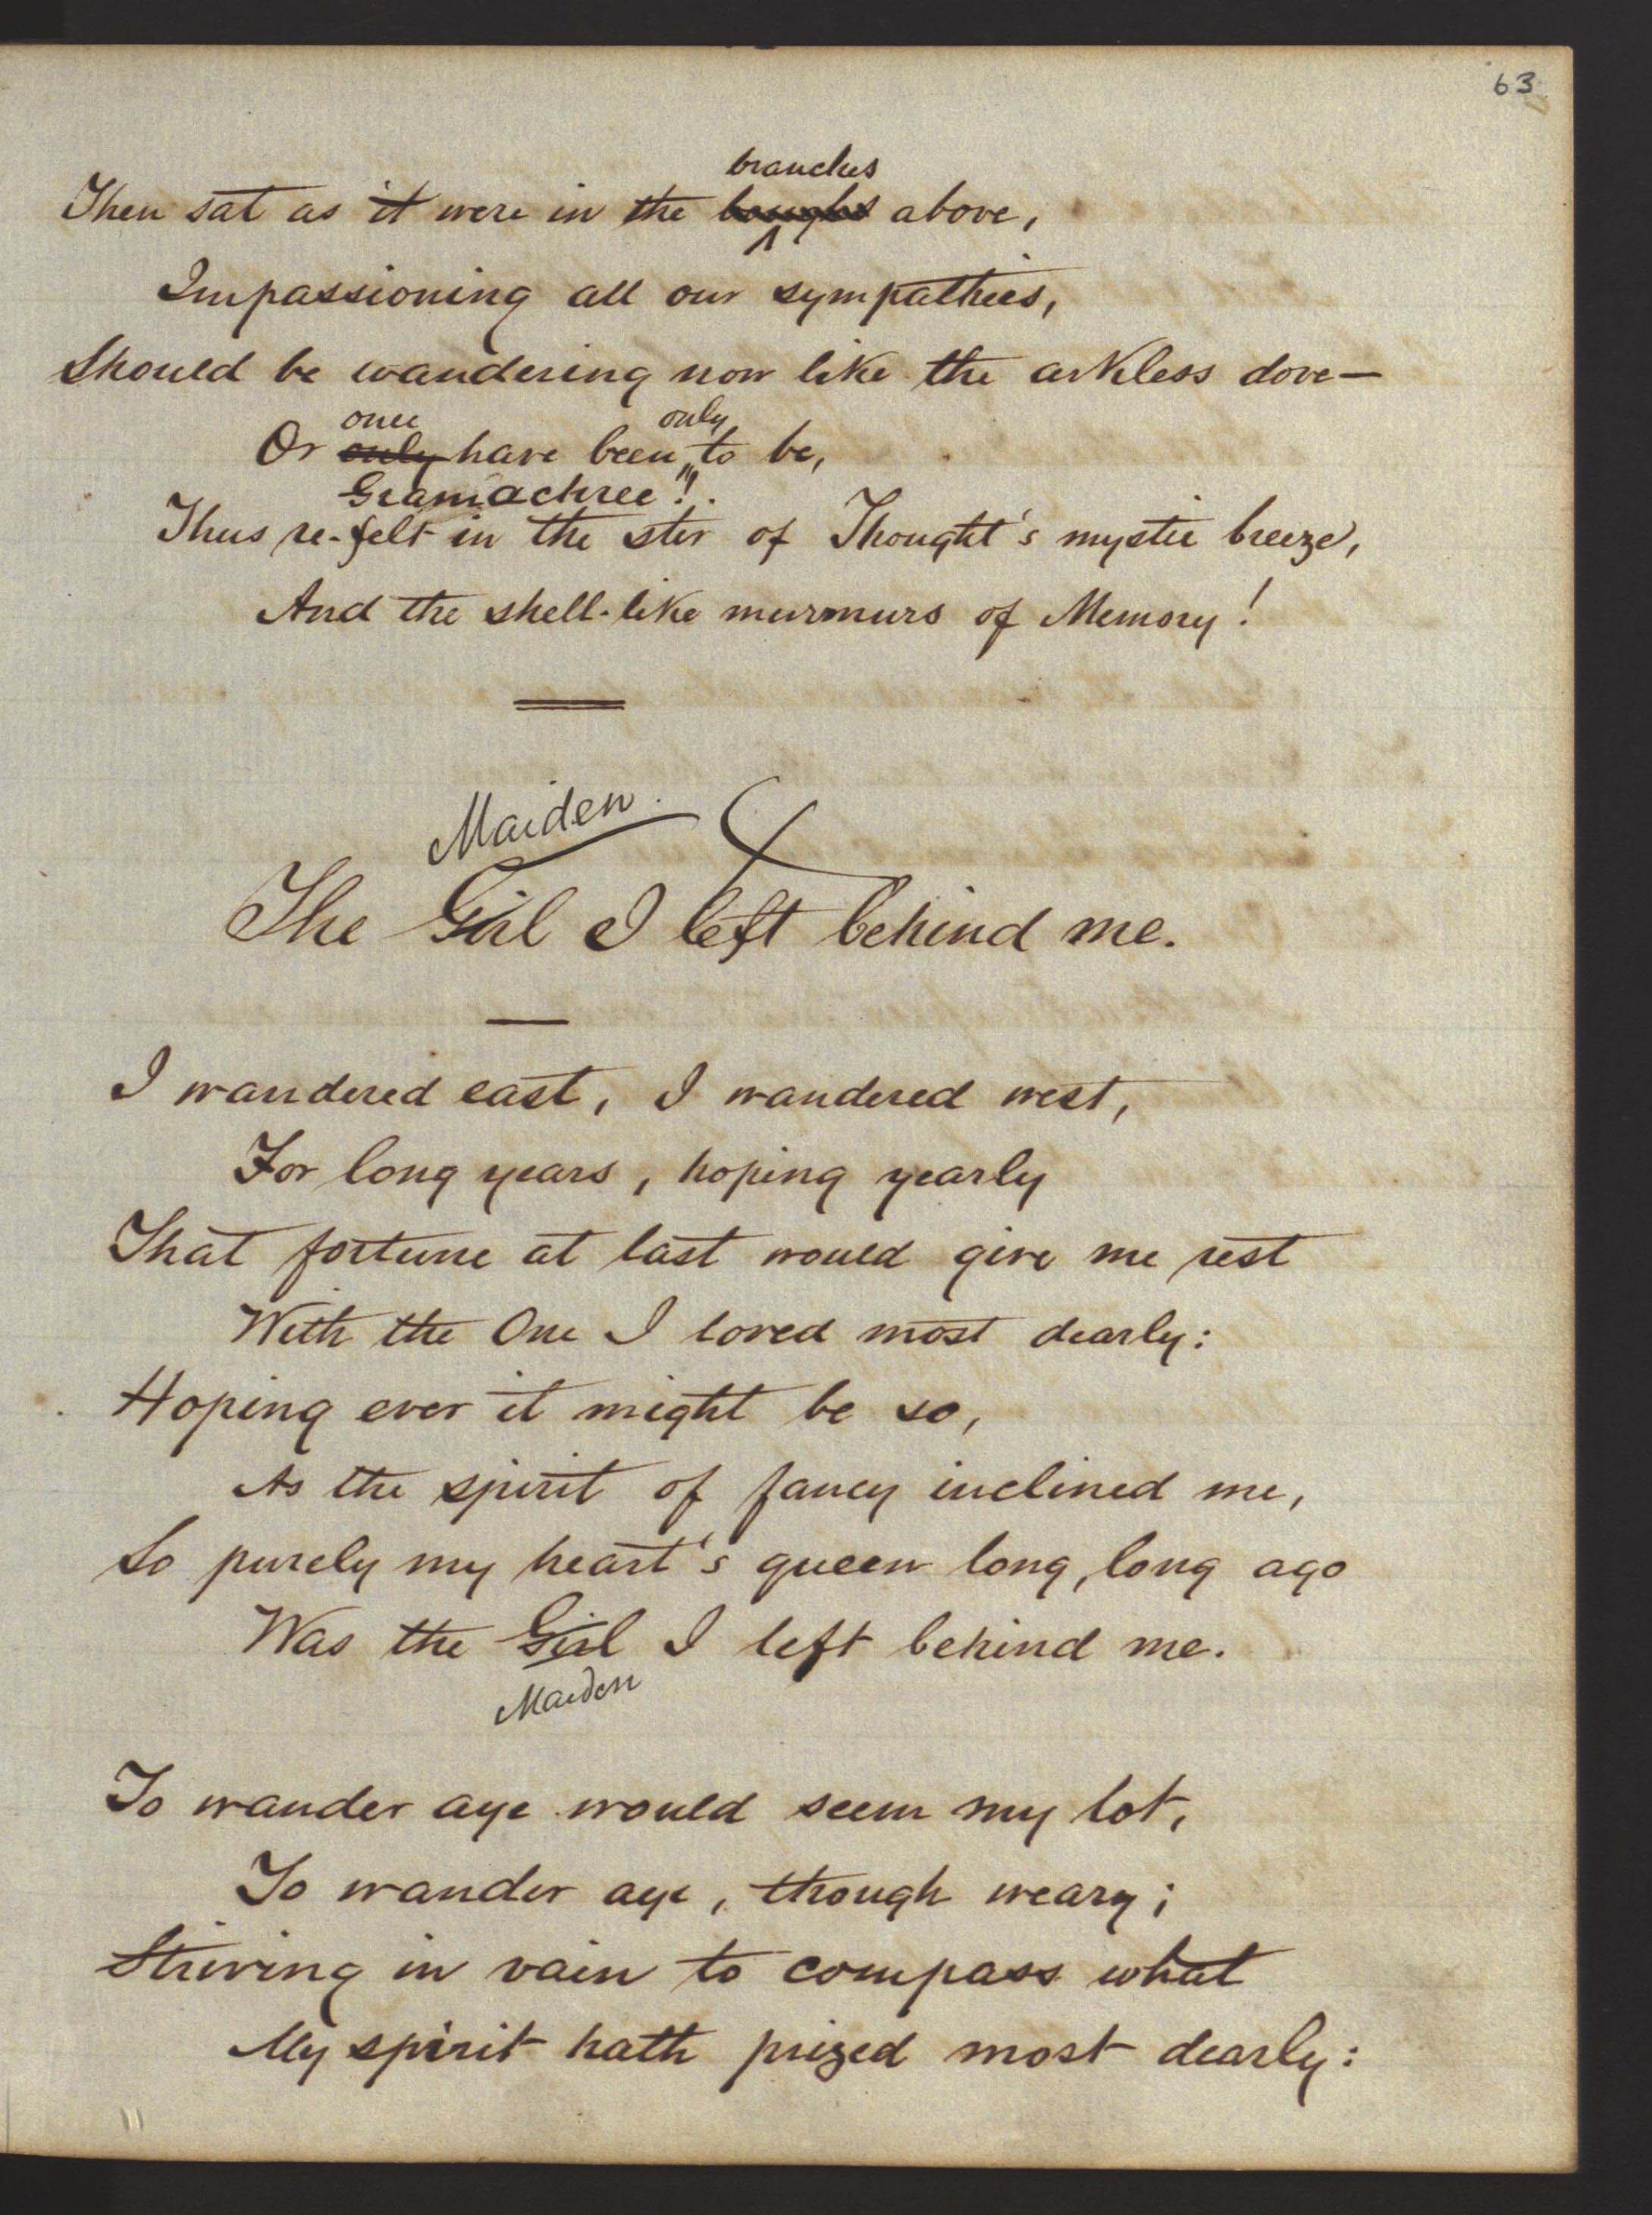 63
branches
Then sat as it were in the boughs above,
Impassioning all our sympathies,
Should be wandering now like the arkless dove—
once only
Or only have been to be,
Gramachree"!
Thus re-felt in the stir of Thought's mystic breeze,
And the shell-like murmurs of Memory!
Maiden
The Girl I left behind me.
I wandered east, I wandered west,
For long years, hoping yearly
That fortune at last would give me rest
With the One I loved most dearly:
Hoping ever it might be so,
As the spirit of fancy inclined me,
So purely my heart's queen long, long ago
Was the Girl I left behind me.
Maiden
To wander aye would seem my lot,
To wander aye, though weary;
Striving in vain to compass what
My spirit hath prized most dearly: